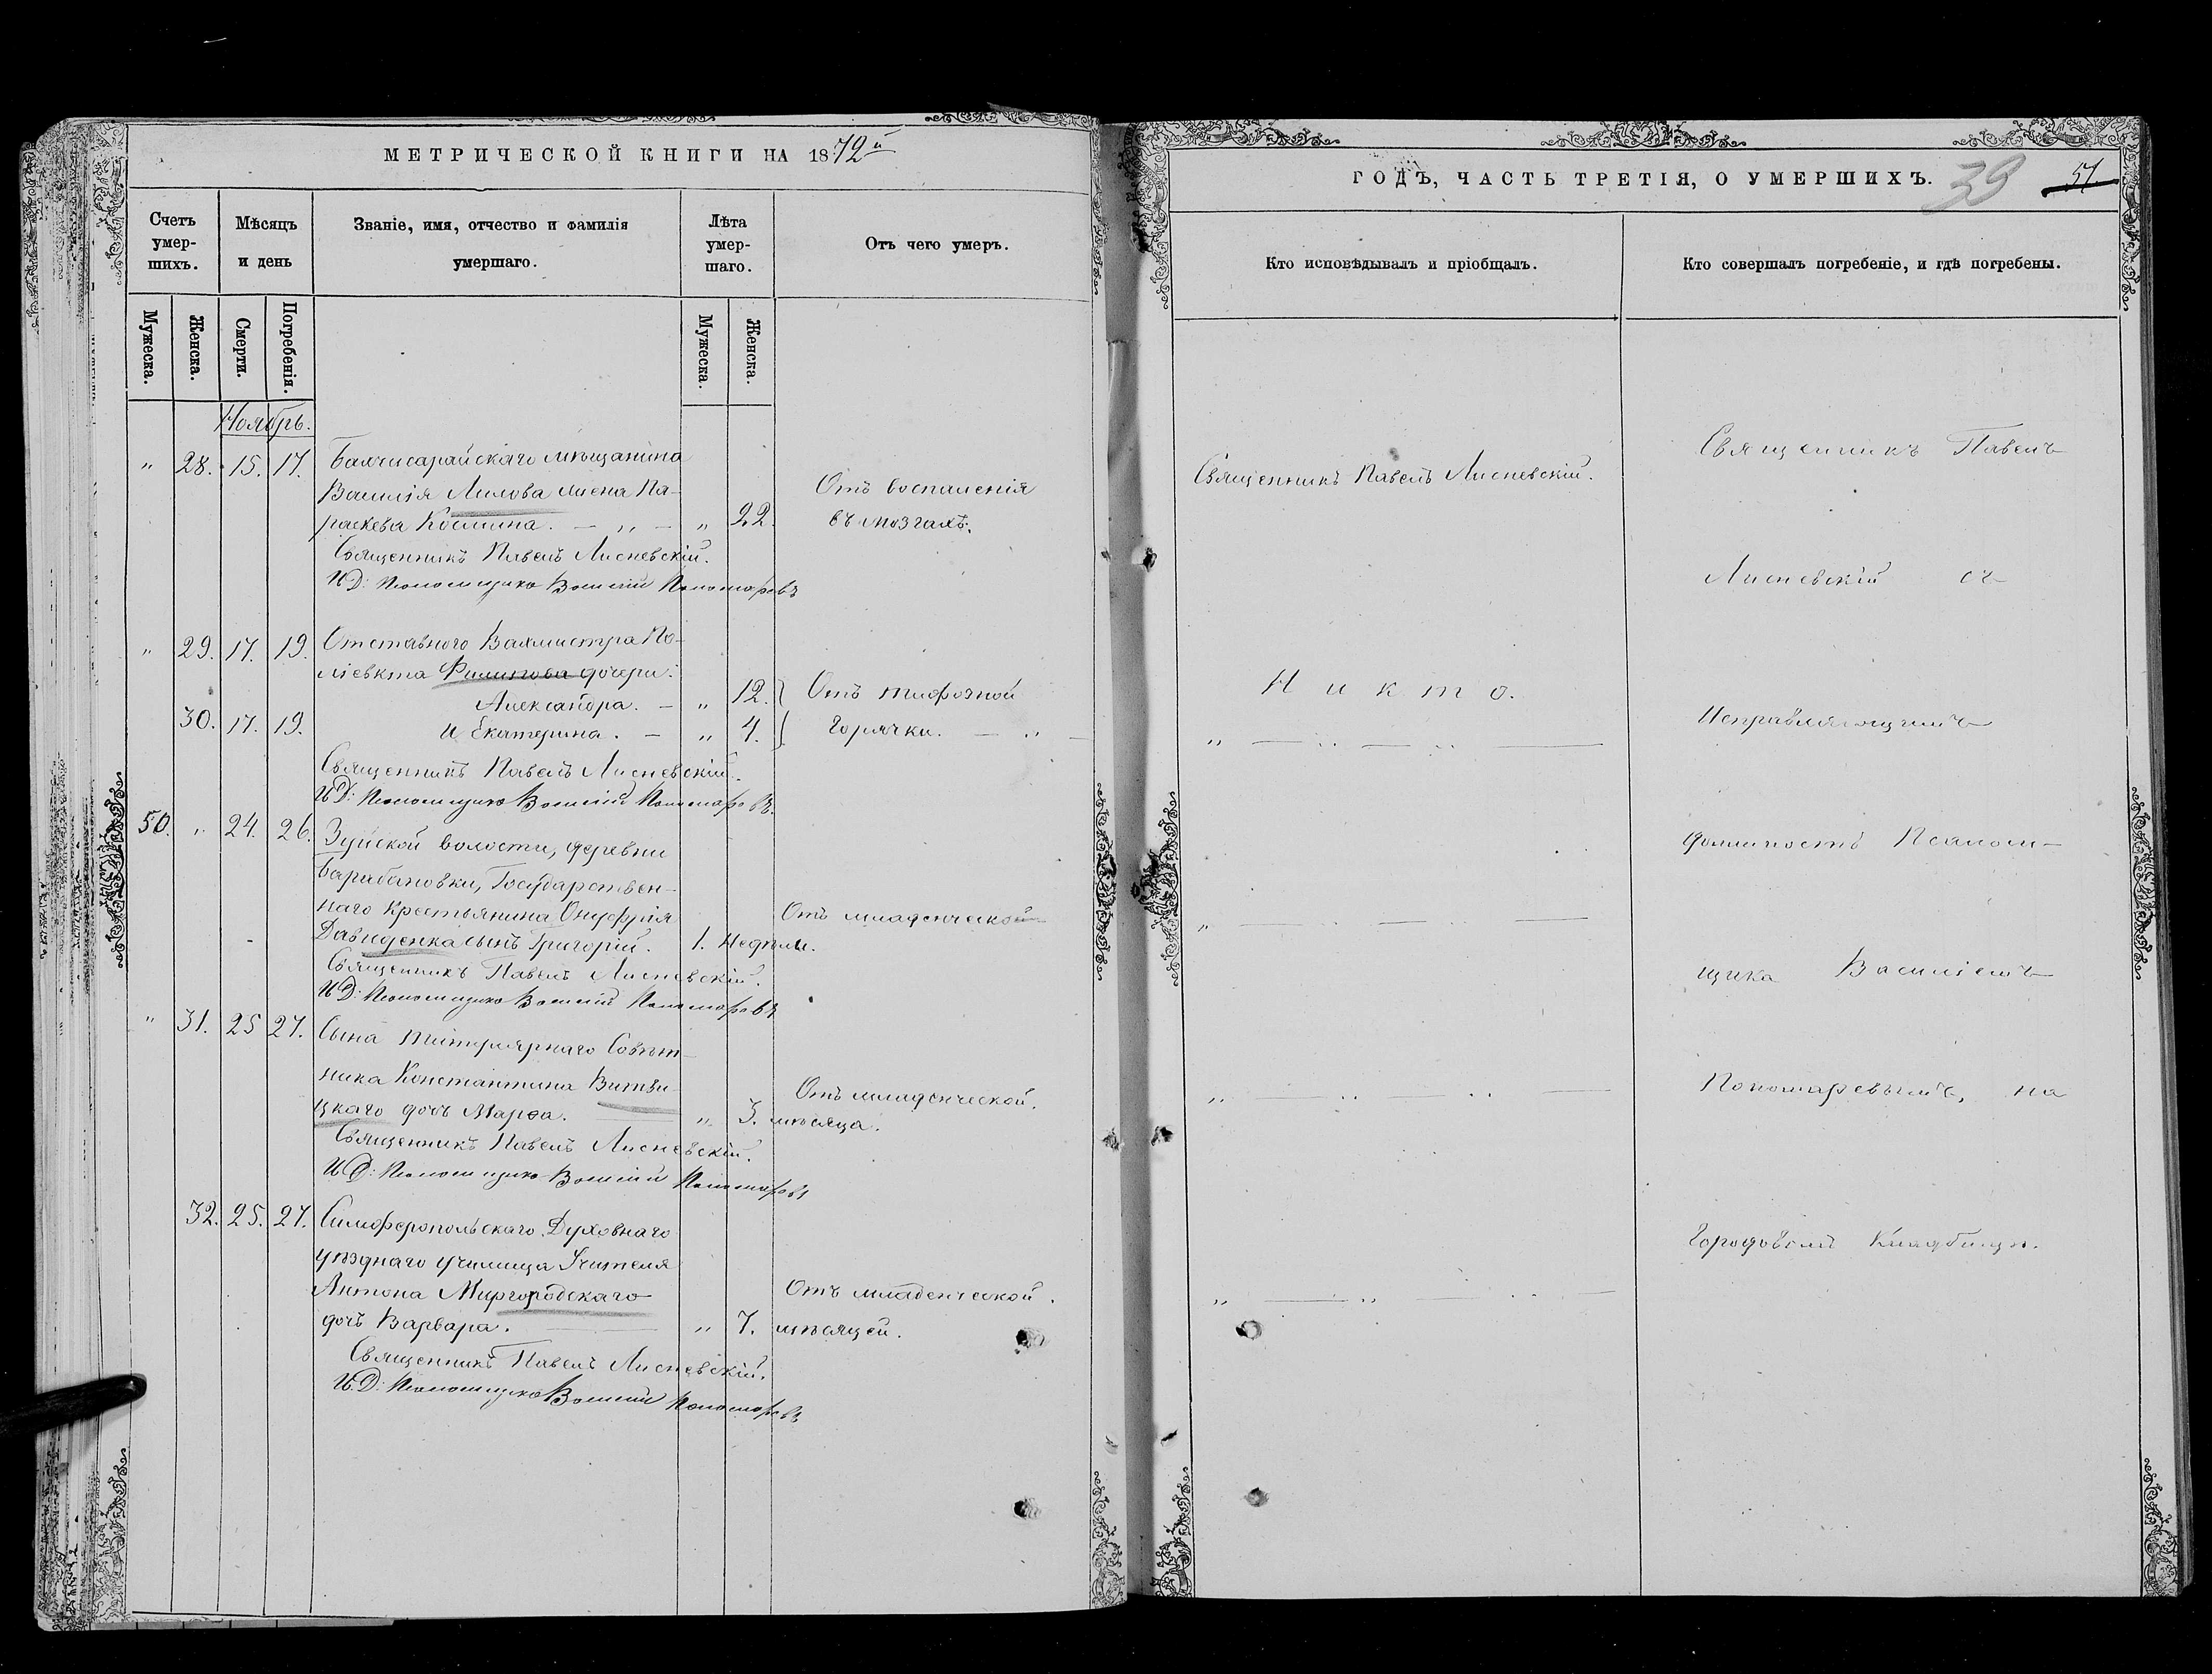 МЕТРИЧЕСКОЙ КНИГИ НА 1872й
Счетъ умер-шихъ.
Мѣсяцъ и день
Званіе, имя, отчество и фамилія умершаго.
Лѣта умер-шаго.
Отъ чего умеръ.
Мужеска.
Женска.
Смерти.
Погребенія.
Мужеска.
Женска.
Ноябрь.
" 28. 15. 17. Бахчисарайскаго мѣщанина
Василія Лилова жена Па-
раскева Космина. — „ — „ 22.
Отъ воспаленія
въ мозгахъ.
Священникъ Павелъ Лисневскій.
И.Д: Псаломщика Василій Пономаревъ
" 29. 17. 19. Отставного Вахмистра По-
ліевкта Филипова дочери:
Александра. — „ 12.
30. 17. 19. и Екатерина. — „ 4.
Отъ тифозной
горячки. — „ —
Священникъ Павелъ Лисневскій.
И.Д: Псаломщика Василій Пономаревъ.
50. „ 24. 26. Зуйской волости, деревни
Барабановки, Государствен-
наго крестьянина Онуфрія
Давиденка сынъ Григорій. 1. недѣли.
Отъ младенческой
Священникъ Павелъ Лисневскій.
И.Д: Псаломщика Василій Пономаревъ
" 31. 25 27. Сына титулярнаго Совѣт-
ника Константина Витви-
цкаго дочь Марѳа. „ 3. мѣсяца.
Отъ младенческой.
Священникъ Павелъ Лисневскій.
И.Д: Псаломщика Василій Пономаревъ
32. 25. 27. Симферопольскаго Духовнаго
уѣзднаго училища Учителя
Антона Миргородскаго
дочь Варвара. „ 7. мѣсяцей.
Отъ младенческой.
Священникъ Павелъ Лисневскій.
И.Д: Псаломщика Василій Пономаревъ
ГОДЪ, ЧАСТЬ ТРЕТІЯ, О УМЕРШИХЪ.
39 51.
Кто исповѣдывалъ и пріобщалъ.
Кто совершалъ погребеніе, и гдѣ погребены.
Священникъ Павелъ Лисневскій.
Никто.
Священникъ Павелъ
Лисневскій съ
Исправляющимъ
должность Псалом-
щика Василіемъ
Пономаревымъ, на
Городовомъ Кладбищѣ.